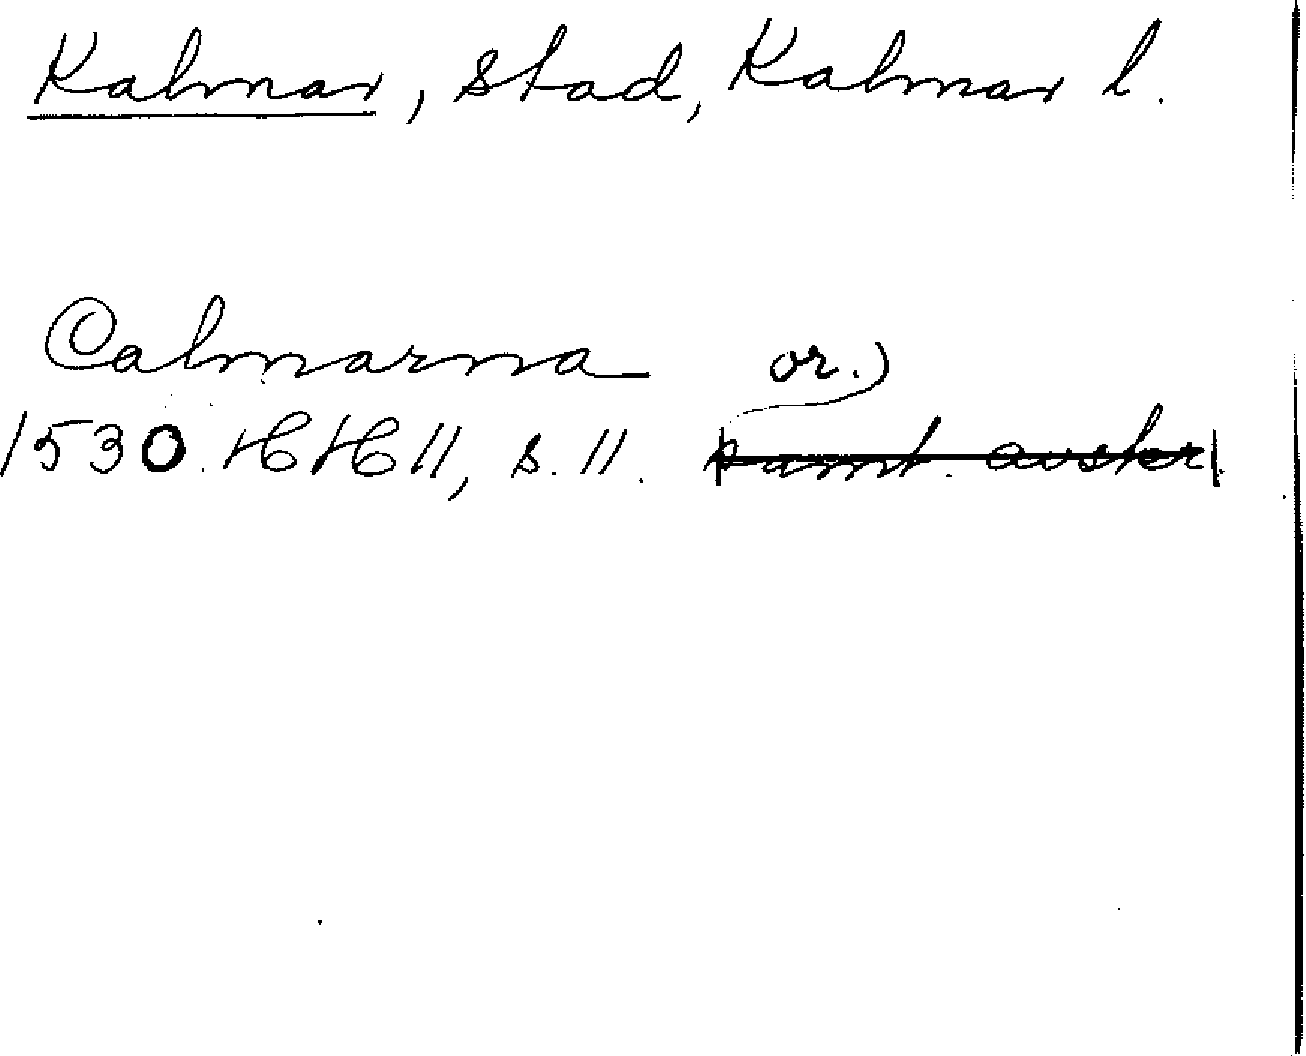 Kalmar, stad, Kalmar l.
Calmarna or.)
1530. HH 11, s. 11. samt. avskr.